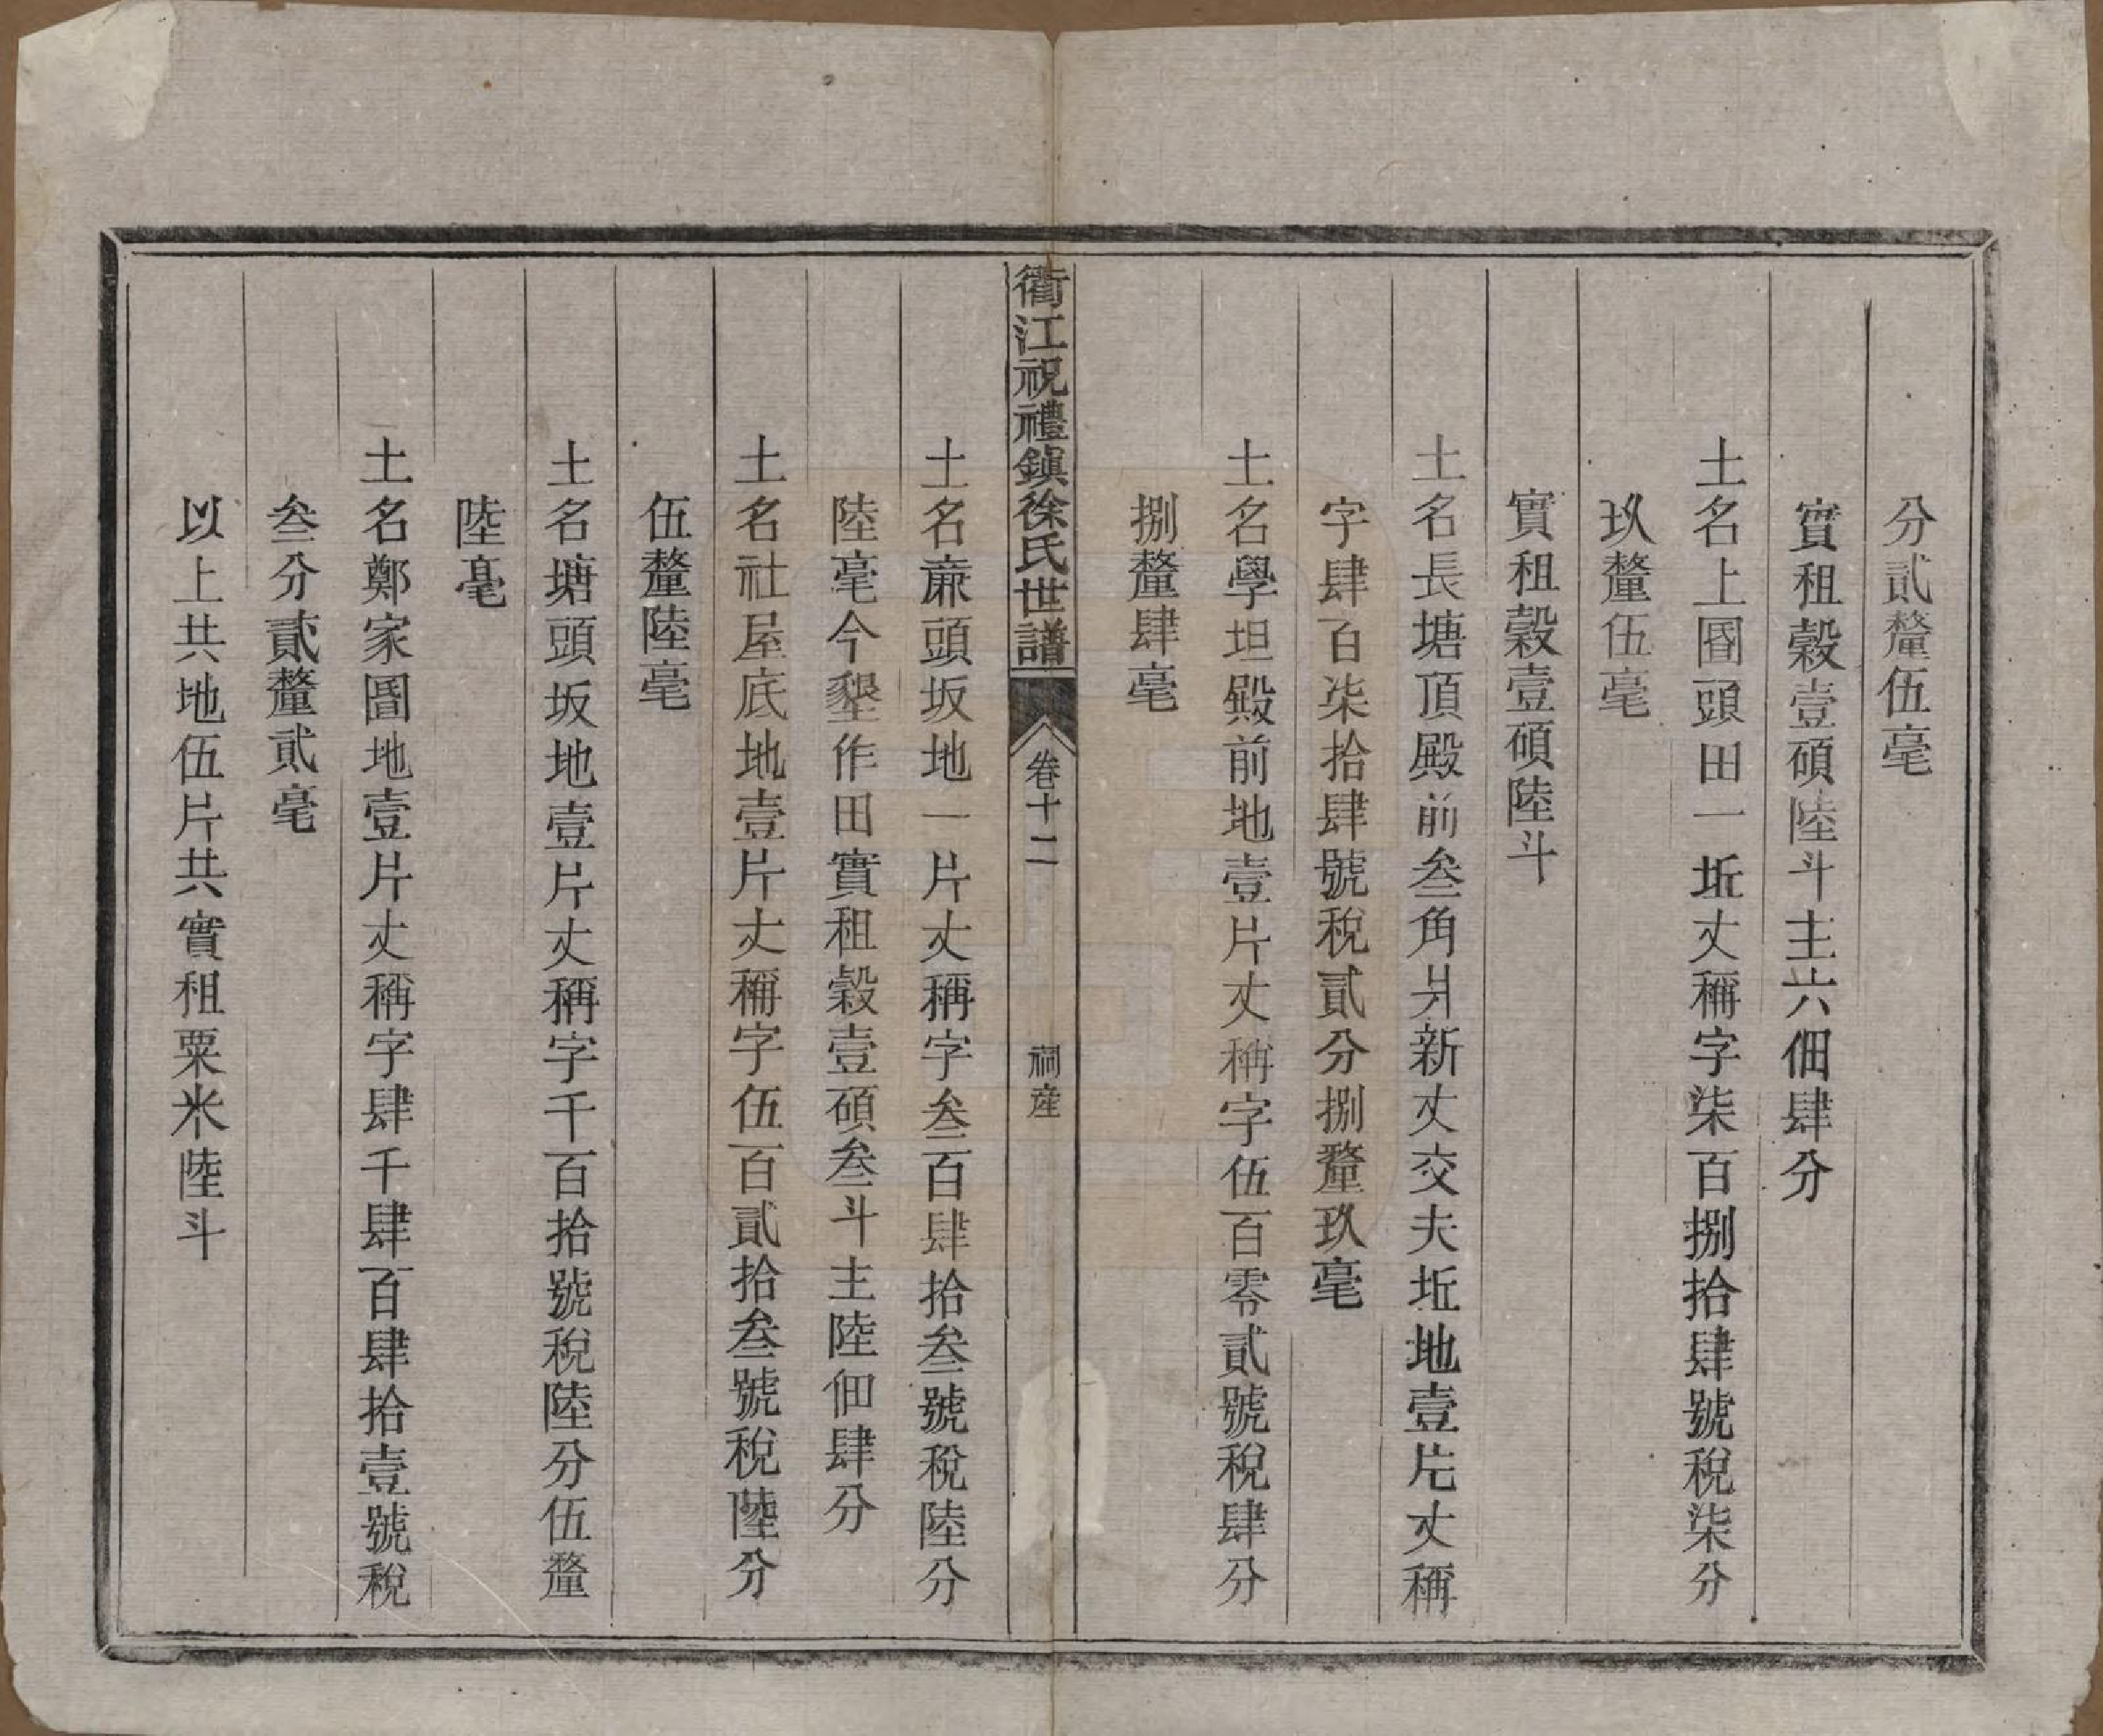 分貳釐伍毫
實租穀壹碩陸斗主六佃肆分
土名上圖頭田一坵丈稱字柒百捌拾肆號稅柒分
玖釐伍毫
實租穀壹碩陸斗
土名長塘頂殿前叁角爿新丈交夫坵地壹片丈稱
字肆百柒拾肆號稅貳分捌釐玖毫
土名學坦殿前地壹片丈稱字伍百零貳號稅肆分
捌釐肆毫
衢江祝禮鎮徐氏世譜 卷十二 祠産
土名㢘頭坂地一片丈稱字叁百肆拾叁號稅陸分
陸毫今墾作田實租穀壹碩叁斗主陸佃肆分
土名社屋底地壹片丈稱字伍百貳拾叁號稅陸分
伍釐陸毫
土名塘頭坂地壹片丈稱字千百拾號稅陸分伍釐
陸毫
土名鄭家圖地壹片丈稱字肆千肆百肆拾壹號稅
叁分貳釐貳毫
以上共地伍片共實租粟米陸斗